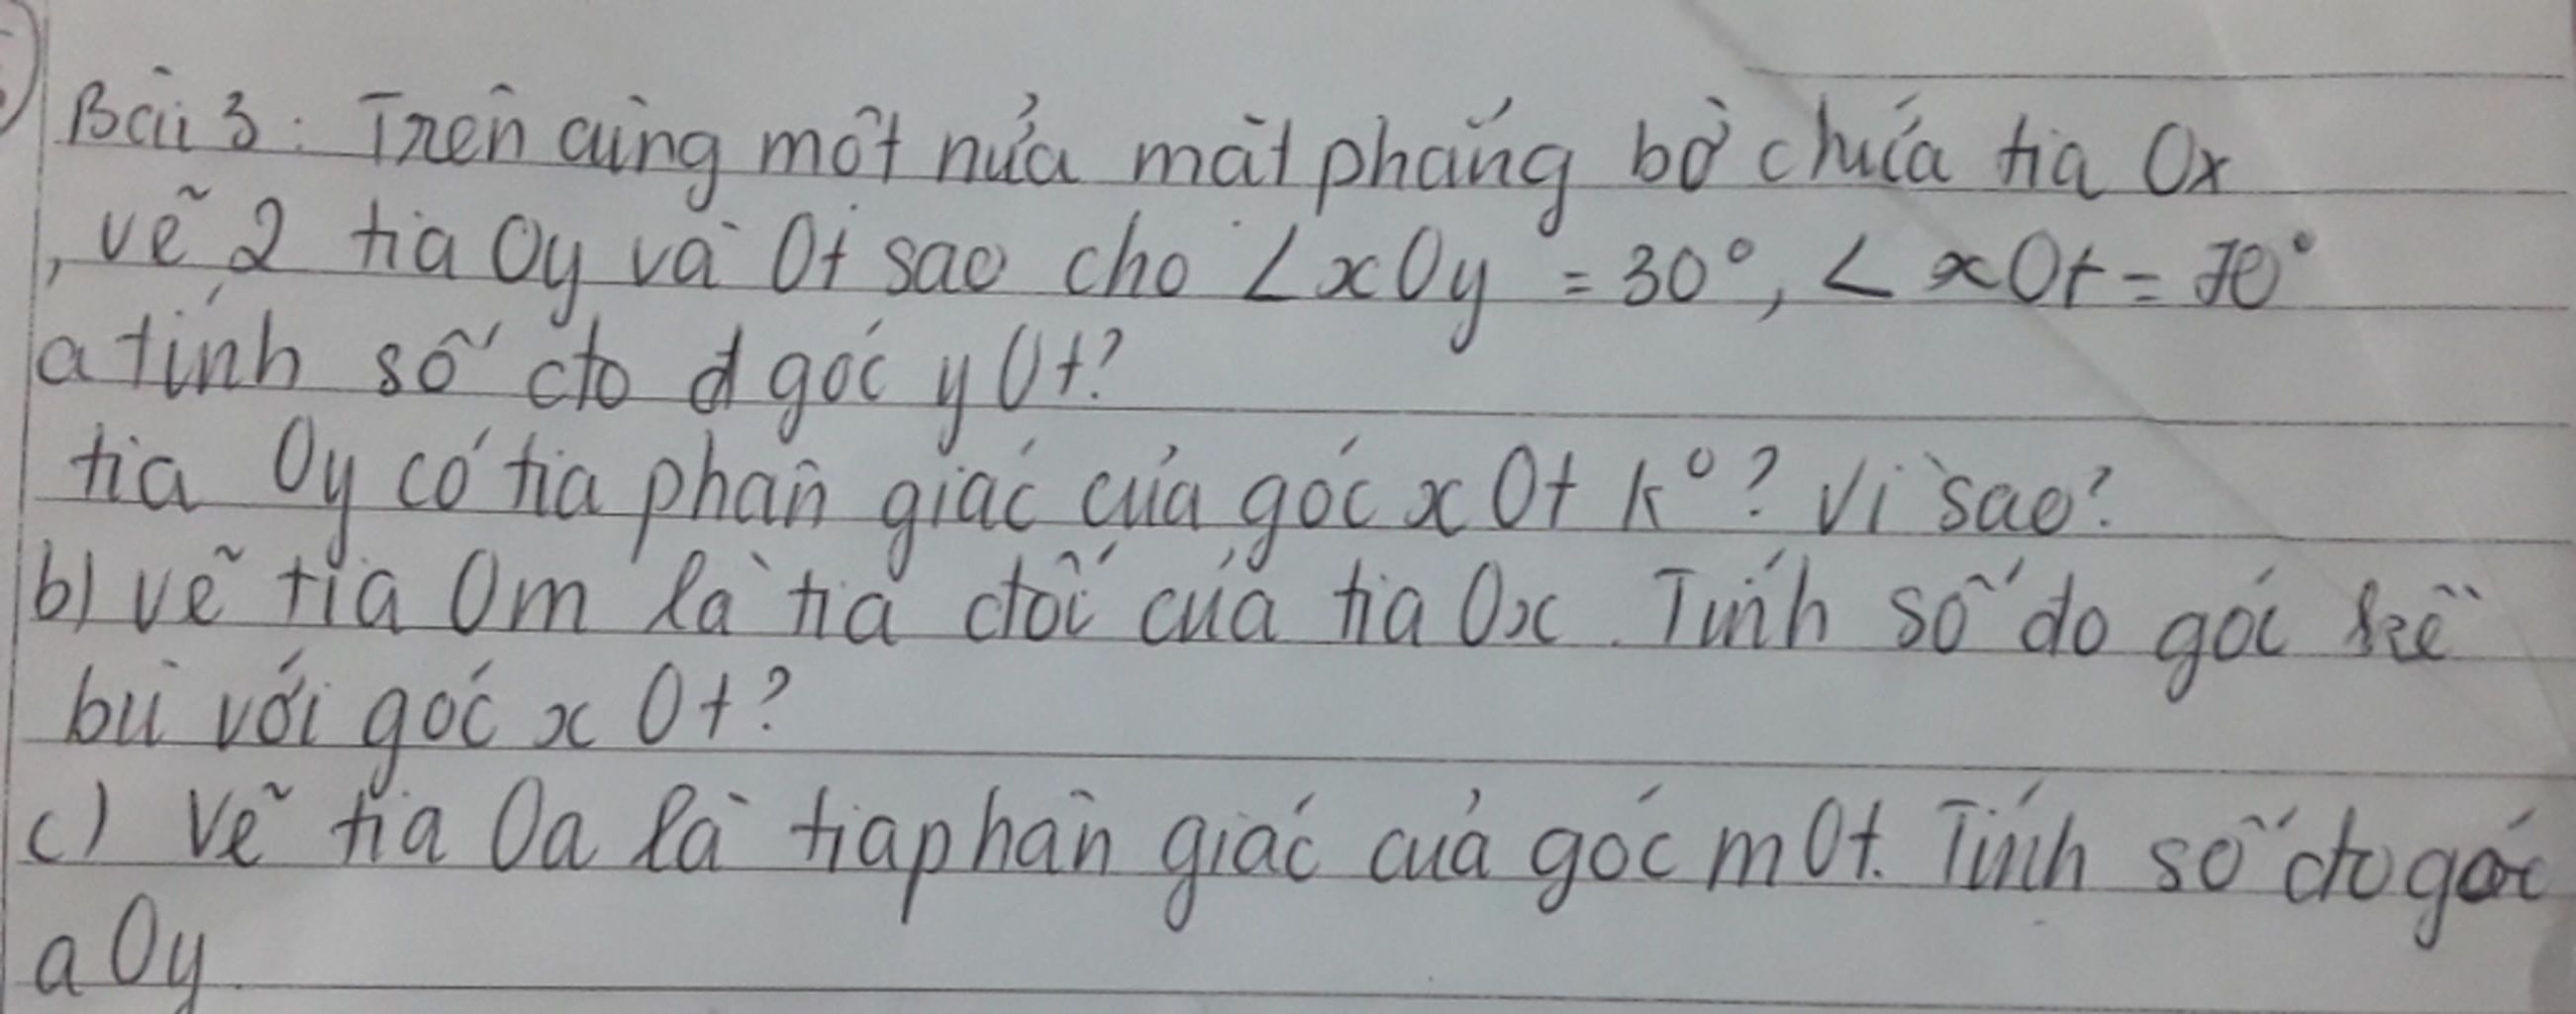 Bài 3: Trên cùng một nửa mặt phẳng bờ chứa tia Ox
, vẽ 2 tia Oy và Ot sao cho ∠xOy = 30°, ∠xOt = 70°
a tính số đo góc yOt?
tia Oy có tia phân giác của góc xOt k°? Vì sao?
b) vẽ tia Om là tia đối của tia Ox. Tính số do góc kề
bù với góc xOt?
c) Vẽ tia Oa là tia phân giác của góc mOt. Tính số đo góc
aOy.